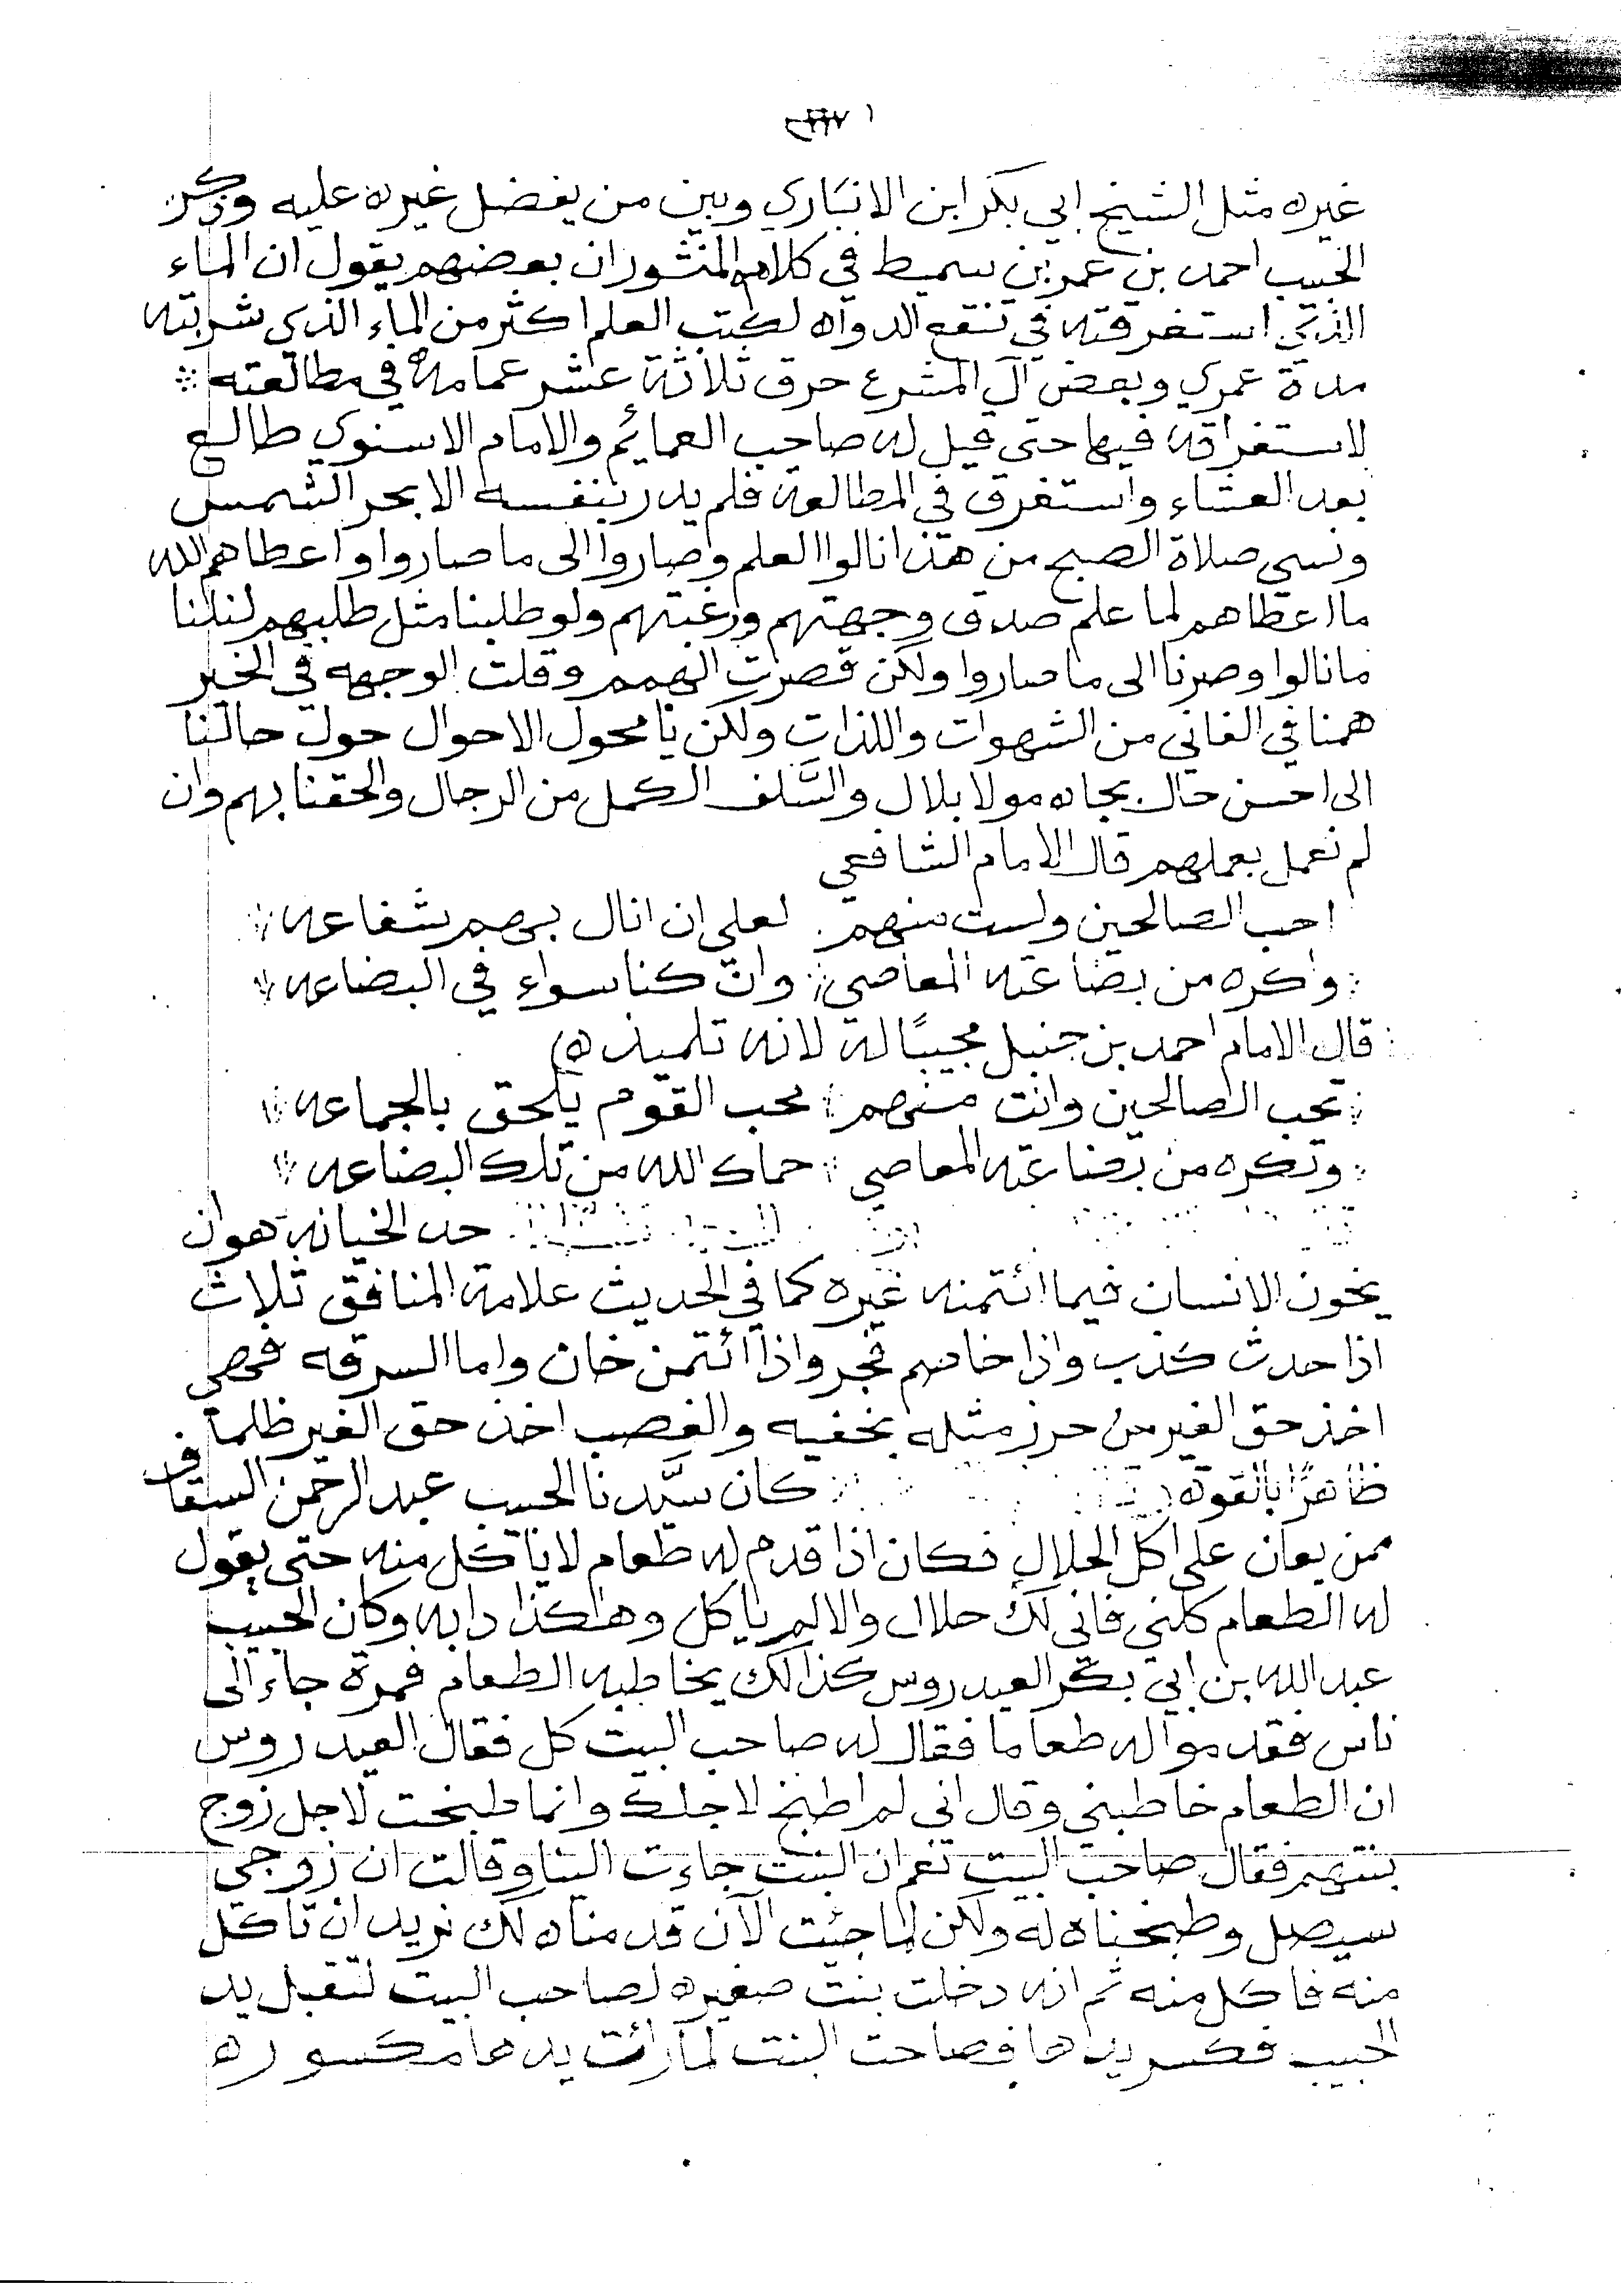 غيره مثل الشيخ ابي بكر ابن الانباري وبين من يفضل غيره عليه وذكر
الحبيب احمد بن عمر بن سميط في كلامه المنثور ان بعضهم يقول ان الماء
الذي استغرقته في تنقع الدواه لكتب العلم اكثر من الماء الذي شربته
مدة عمري وبعض آل المشرع حرق ثلاثة عشر عمامة في مطالعته
لاستغراقه فيها حتى قيل له صاحب العمائم والامام الاسنوي طالع
بعد العشاء واستغرق في المطالعة فلم يدر بنفسه الا بحر الشمس
ونسي صلاة الصبح من هذا نالوا العلم وصاروا الى ما صاروا واعطاهم الله
ما اعطاهم لما علم صدق وجهتهم ورغبتهم ولو طلبنا مثل طلبهم لنلنا
ما نالوا وصرنا الى ما صاروا ولكن قصرت الهمم وقلت الوجهه في الخير
همنا في الفاني من الشهوات واللذات ولكن يا محول الاحوال حول حالنا
الى احسن حال بجاه مولا بلال والسَّلف الكمل من الرجال والحقنا بهم وان
لم نعمل بعملهم قال الامام الشافعي
احب الصالحين ولست منهم لعلي ان انال بهم شفاعه
واكره من بضاعته المعاصي وان كنا سواء في البضاعه
قال الامام احمد بن حنبل مجيبًا له لانه تلميذه
تحب الصالحين وانت منهم محب القوم يلحق بالجماعه
وتكره من بضاعته المعاصي حماك الله من تلك البضاعه
حد الخيانه هو ان
يخون الانسان فيما ائتمنه غيره كما في الحديث علامة المنافق ثلاث
اذا حدث كذب واذا خاصم فجر واذا ائتمن خان واما السرقه فهي
اخذ حق الغير من حرز مثله بخفيه والغصب اخذ حق الغير ظلما
ظاهرًا بالقوه كان سيَّدنا الحبيب عبد الرحمن السقاف
ممن يعان على اكل الحلال فكان اذا قدم له طعام لا ياكل منه حتى يقول
له الطعام كلني فاني لك حلال والا لم ياكل وهاكذا دابه وكان الحبيب
عبد الله بن ابي بكر العيدروس كذالك يخاطبه الطعام فمرة جاء الى
ناس فقدموا له طعاما فقال له صاحب البيت كل فقال العيدروس
ان الطعام خاطبني وقال اني لم اطبخ لاجلك وانما طبخت لاجل زوج
بنتهم فقال صاحب البيت نعم ان البنت جاءت الينا وقالت ان زوجي
سيصل وطبخناه له ولكن لما جئت الآن قدمناه لك نريد ان تاكل
منه فاكل منه ثم انه دخلت بنت صغيره لصاحب البيت لتقبل يد
الحبيب فكسر يدها فصاحت البنت لما رائت يدها مكسوره